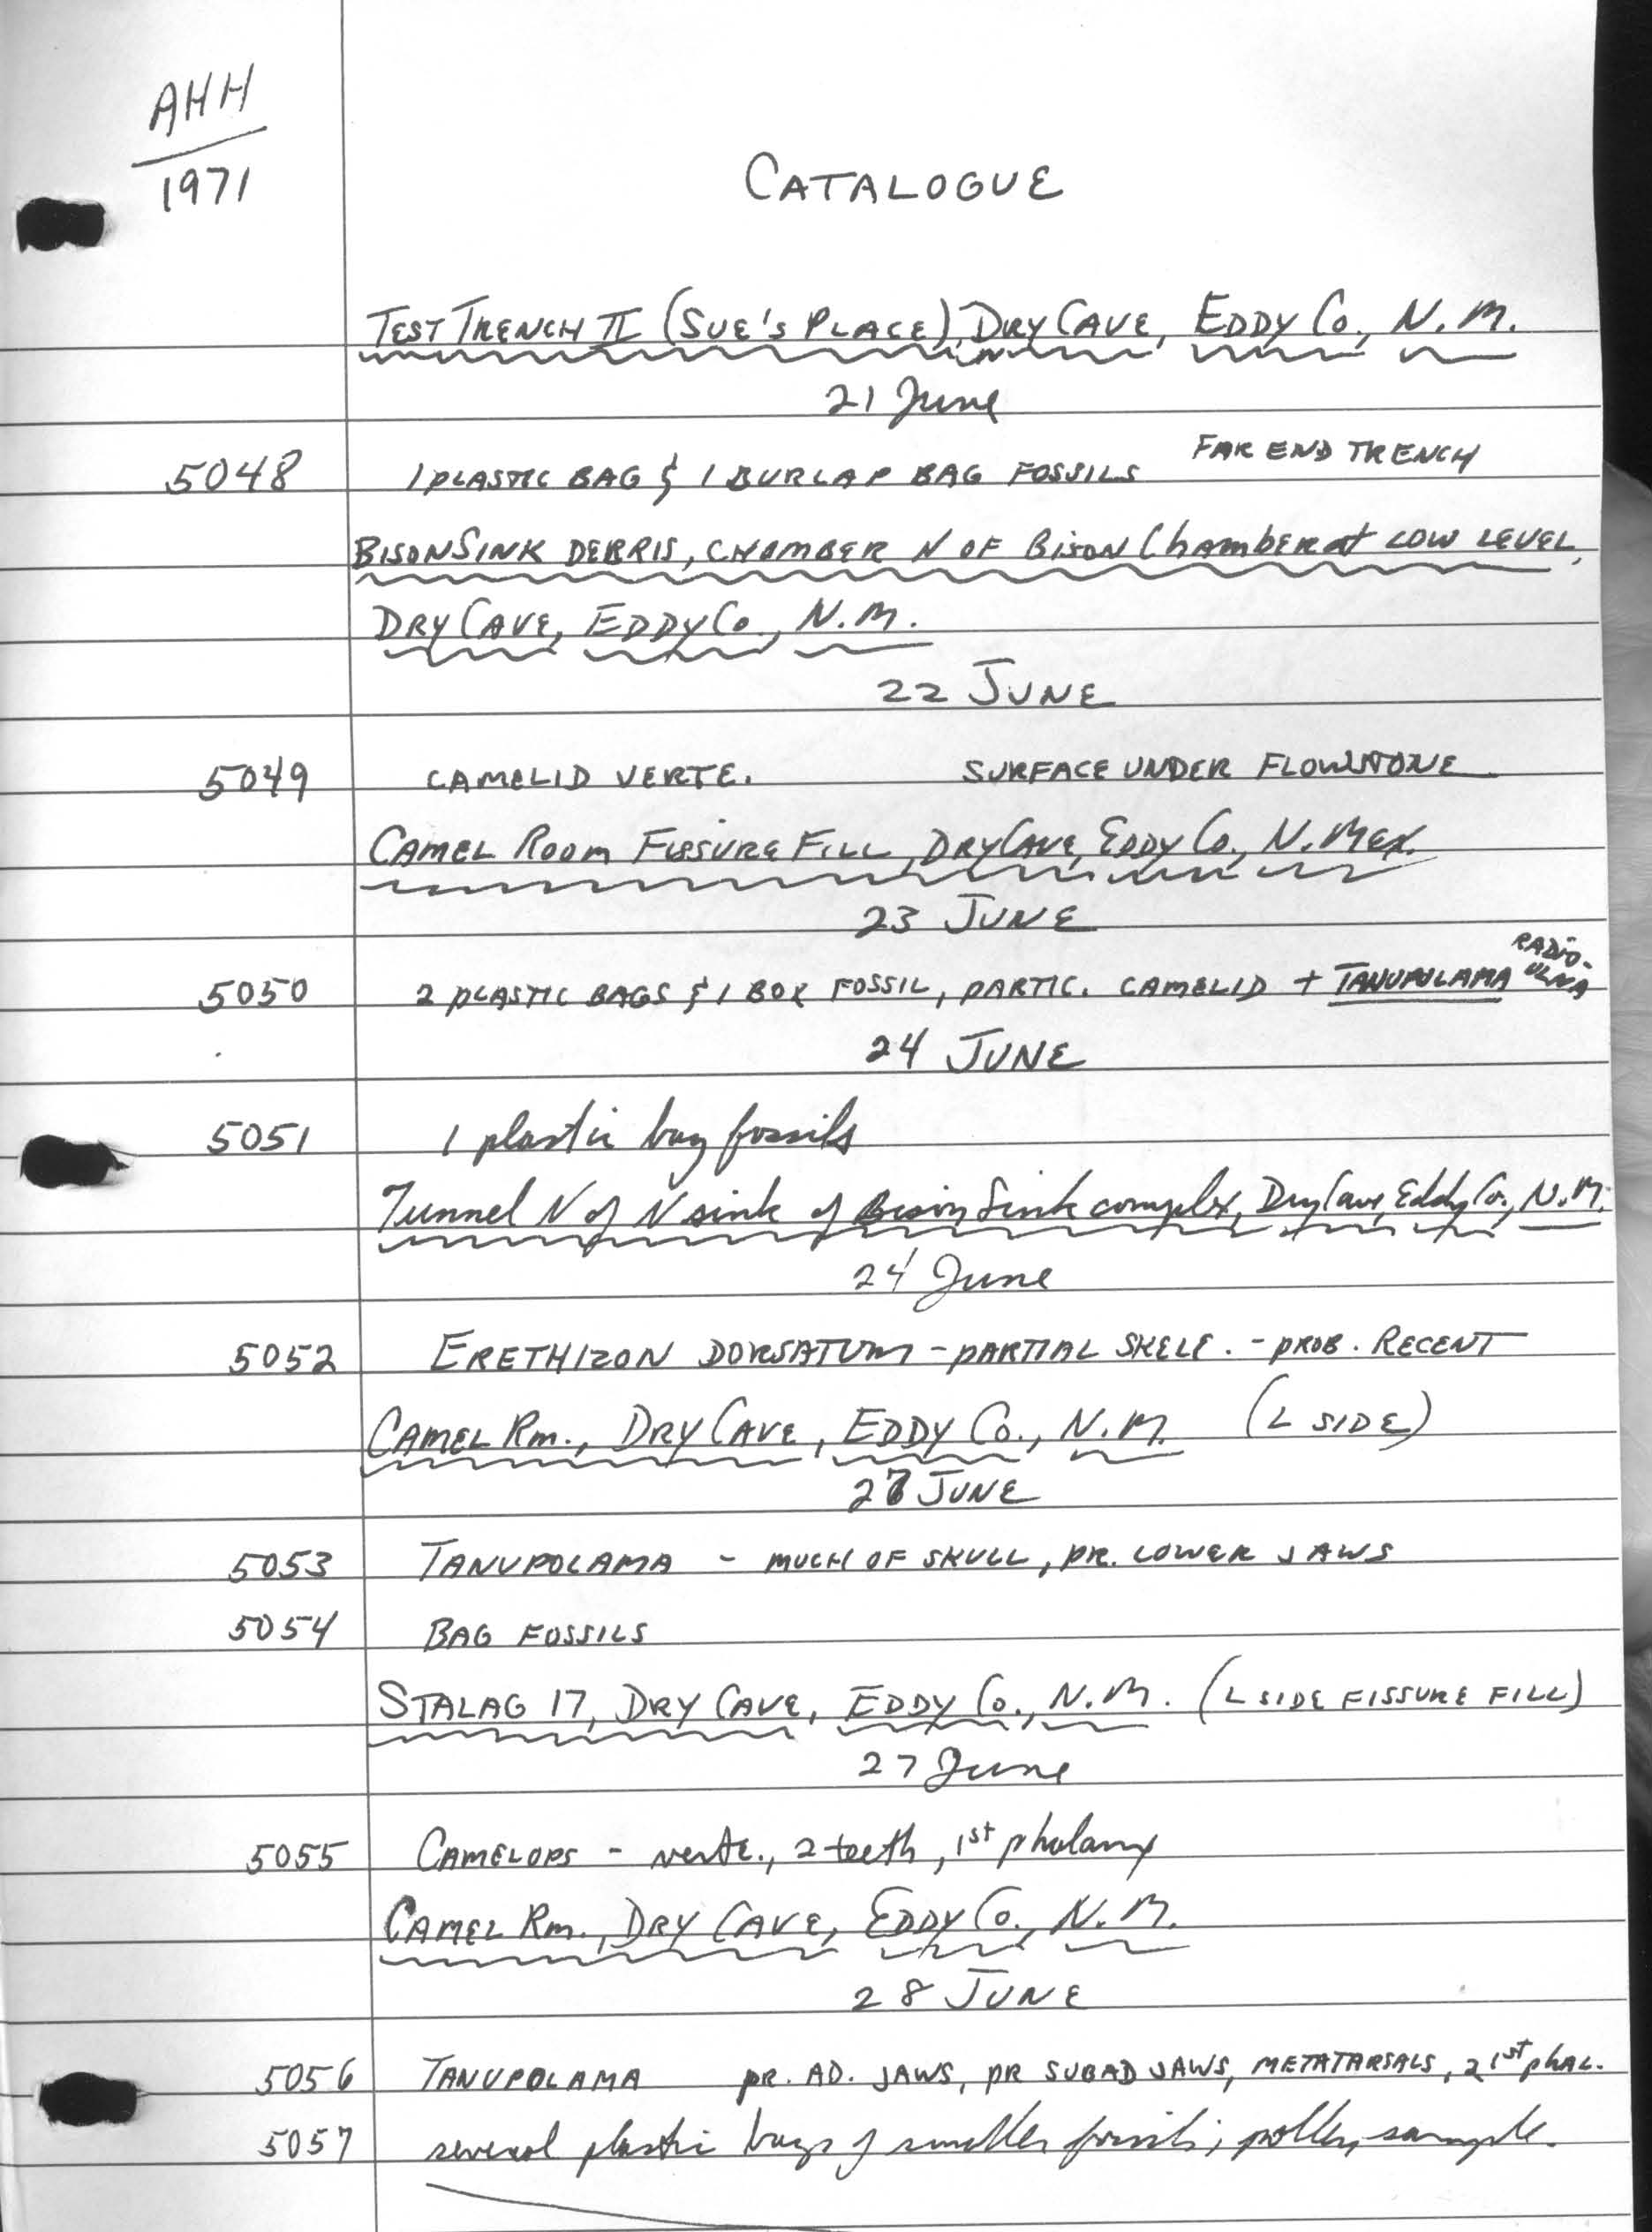 AHH
1971
CATALOGUE
TEST TRENCH II (SUE'S PLACE), DRY CAVE, EDDY CO., N.M.
21 June
5048 1 PLASTIC BAG & 1 BURLAP BAG FOSSILS FAR END TRENCH
BISON SINK DEBRIS, CHAMBER N OF BISON Chamber at LOW LEVEL,
DRY CAVE, EDDY CO., N.M.
22 JUNE
5049 CAMELID VERTE. SURFACE UNDER FLOWSTONE
CAMEL ROOM FISSURE FILL, DRY CAVE, EDDY CO., N. MEX.
23 JUNE
5050 2 PLASTIC BAGS & 1 BOX FOSSIL, PARTIC. CAMELID + TANUPOLAMA RADIO-ULNA
24 JUNE
5051 1 plastic bag fossils
Tunnel N of N sink of Bison Sink complex, Dry Cave, Eddy Co., N.M.
24 June
5052 ERETHIZON DORSATUM - PARTIAL SKELE. - PROB. RECENT
CAMEL RM., DRY CAVE, EDDY CO., N.M. (L SIDE)
27 JUNE
5053 TANUPOLAMA - MUCH OF SKULL, PR. LOWER JAWS
5054 BAG FOSSILS
STALAG 17, DRY CAVE, EDDY CO., N.M. (L SIDE FISSURE FILL)
27 June
5055 CAMELOPS - verte., 2 teeth, 1st phalanx
CAMEL RM., DRY CAVE, EDDY CO., N.M.
28 JUNE
5056 TANUPOLAMA PR. AD. JAWS, PR SUBAD JAWS, METATARSALS, 2 1st phal.
5057 several plastic bags of smaller fossils; pollen sample.